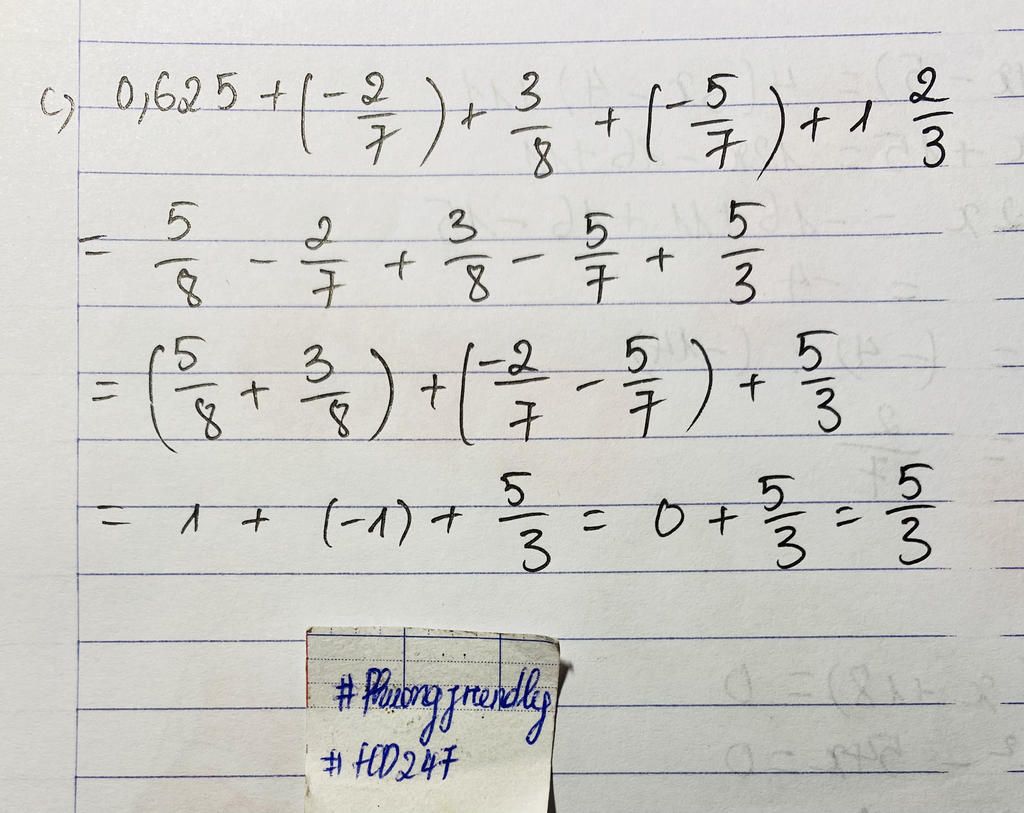 c) 0,625 + (-2/7) + 3/8 + (-5/7) + 1 2/3
= 5/8 - 2/7 + 3/8 - 5/7 + 5/3
= (5/8 + 3/8) + (-2/7 - 5/7) + 5/3
= 1 + (-1) + 5/3 = 0 + 5/3 = 5/3
#Phuongfriendly
#HD247